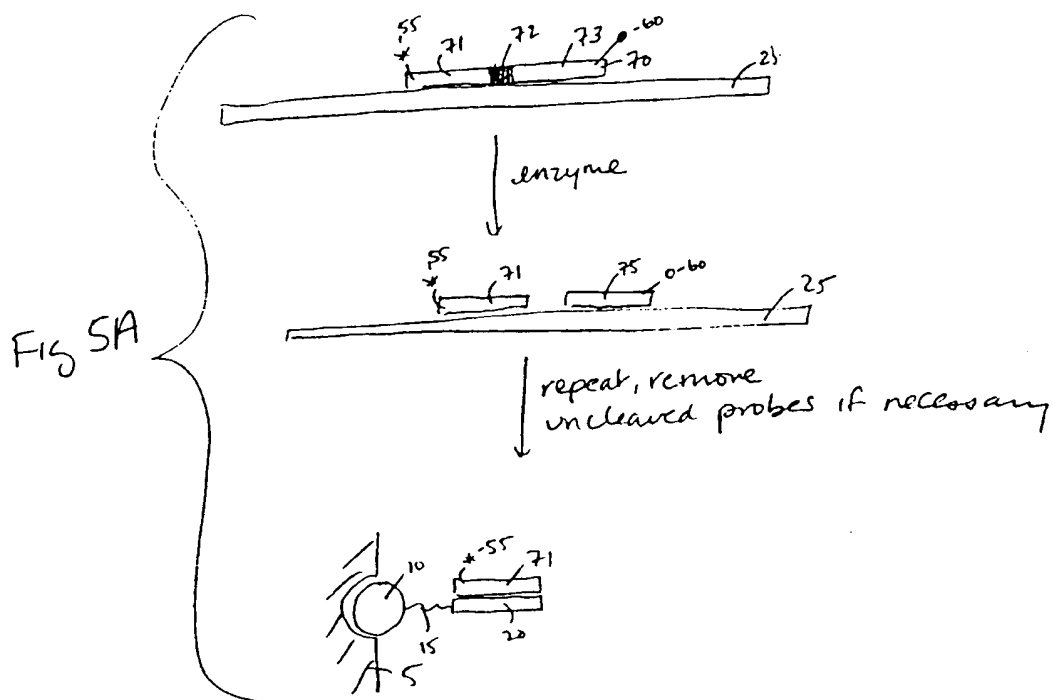 55 71 72 73 -60
* 70
25
enzyme
55 71 75 0-60
* 25
Fig 5A
repeat, remove
uncleaved probes if necessary
10 *-55 71
15 20
5